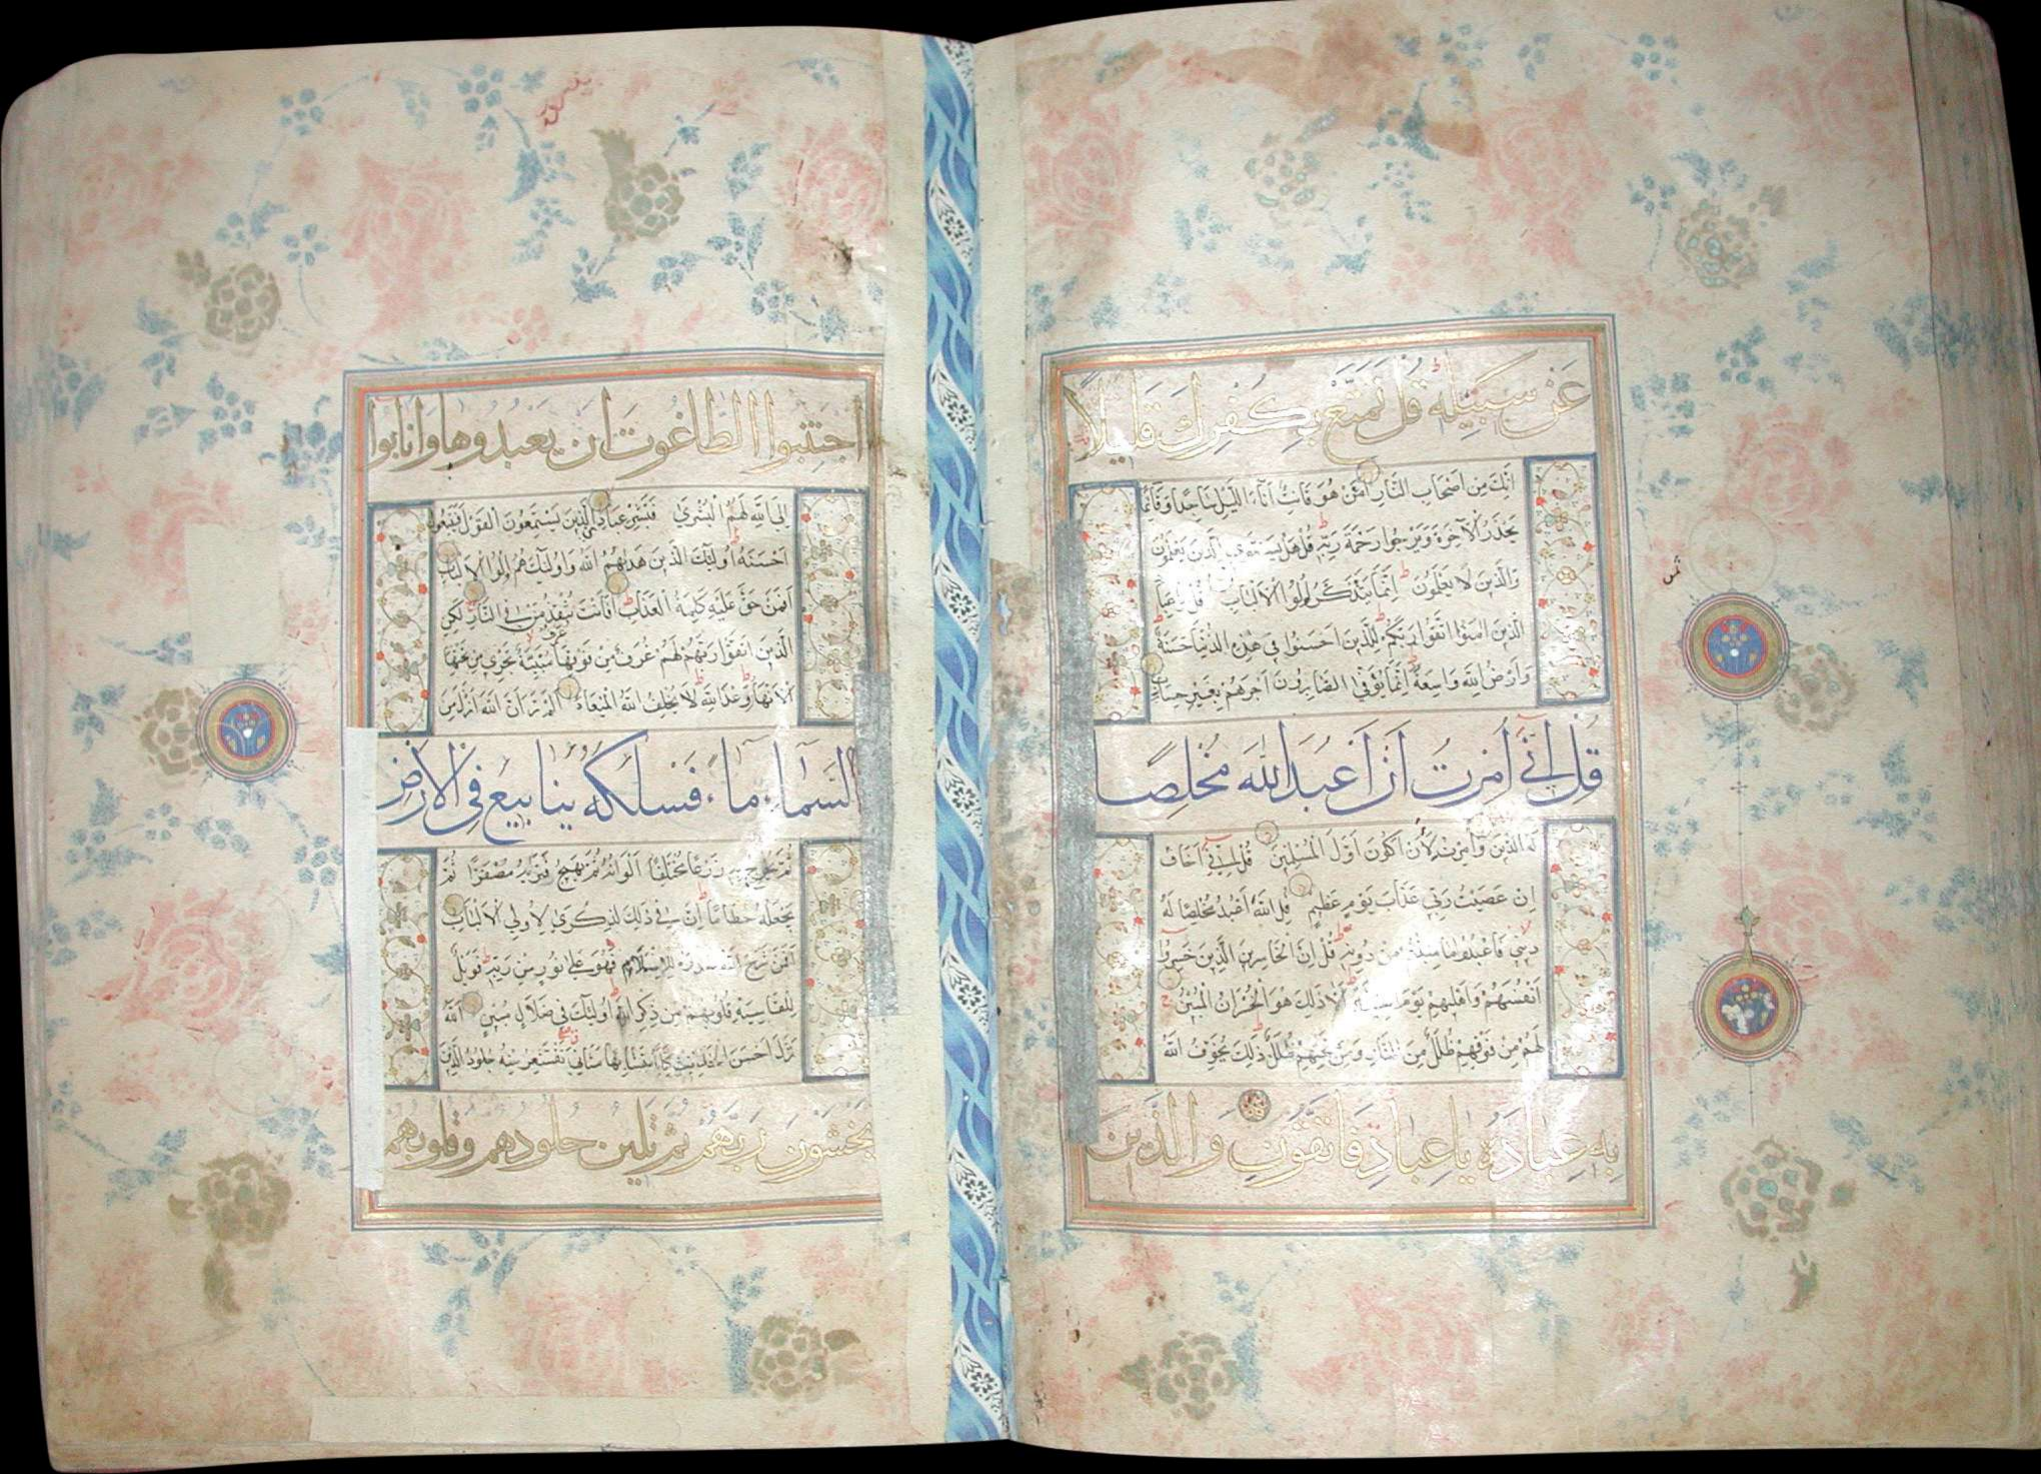 عَنْ سَبِيلِهِ قُلْ تَمَتَّعْ بِكُفْرِكَ قَلِيلًا
اِنَّكَ مِنْ اَصْحَابِ النَّارِ اَمَّنْ هُوَ قَانِتٌ اٰنَاءَ اللَّيْلِ سَاجِدًا وَقَائِمًا
يَحْذَرُ الْآخِرَةَ وَيَرْجُوا رَحْمَةَ رَبِّهِ قُلْ هَلْ يَسْتَوِي الَّذِينَ يَعْلَمُونَ
وَالَّذِينَ لَا يَعْلَمُونَ اِنَّمَا يَتَذَكَّرُ اُولُوا الْاَلْبَابِ قُلْ يَاعِبَادِ
الَّذِينَ اٰمَنُوا اتَّقُوا رَبَّكُمْ لِلَّذِينَ اَحْسَنُوا فِي هٰذِهِ الدُّنْيَا حَسَنَةٌ
وَاَرْضُ اللّٰهِ وَاسِعَةٌ اِنَّمَا يُوَفَّى الصَّابِرُونَ اَجْرَهُمْ بِغَيْرِ حِسَابٍ
قُلْ اِنِّي اُمِرْتُ اَنْ اَعْبُدَ اللّٰهَ مُخْلِصًا
لَهُ الدِّينَ وَاُمِرْتُ لِاَنْ اَكُونَ اَوَّلَ الْمُسْلِمِينَ قُلْ اِنِّي اَخَافُ
اِنْ عَصَيْتُ رَبِّي عَذَابَ يَوْمٍ عَظِيمٍ قُلِ اللّٰهَ اَعْبُدُ مُخْلِصًا لَهُ
دِينِي فَاعْبُدُوا مَا شِئْتُمْ مِنْ دُونِهِ قُلْ اِنَّ الْخَاسِرِينَ الَّذِينَ خَسِرُوا
اَنْفُسَهُمْ وَاَهْلِيهِمْ يَوْمَ الْقِيٰمَةِ اَلَا ذٰلِكَ هُوَ الْخُسْرَانُ الْمُبِينُ
لَهُمْ مِنْ فَوْقِهِمْ ظُلَلٌ مِنَ النَّارِ وَمِنْ تَحْتِهِمْ ظُلَلٌ ذٰلِكَ يُخَوِّفُ اللّٰهُ
بِهِ عِبَادَهُ يَاعِبَادِ فَاتَّقُونِ وَالَّذِينَ
اجْتَنَبُوا الطَّاغُوتَ اَنْ يَعْبُدُوهَا وَاَنَابُوا
اِلَى اللّٰهِ لَهُمُ الْبُشْرَى فَبَشِّرْ عِبَادِ الَّذِينَ يَسْتَمِعُونَ الْقَوْلَ فَيَتَّبِعُونَ
اَحْسَنَهُ اُولٰئِكَ الَّذِينَ هَدٰيهُمُ اللّٰهُ وَاُولٰئِكَ هُمْ اُولُوا الْاَلْبَابِ
اَفَمَنْ حَقَّ عَلَيْهِ كَلِمَةُ الْعَذَابِ اَفَاَنْتَ تُنْقِذُ مَنْ فِي النَّارِ لٰكِنِ
الَّذِينَ اتَّقَوْا رَبَّهُمْ لَهُمْ غُرَفٌ مِنْ فَوْقِهَا مَبْنِيَّةٌ تَجْرِي مِنْ تَحْتِهَا
الْاَنْهَارُ وَعْدَ اللّٰهِ لَا يُخْلِفُ اللّٰهُ الْمِيعَادَ اَلَمْ تَرَ اَنَّ اللّٰهَ اَنْزَلَ مِنَ
السَّمَاءِ مَاءً فَسَلَكَهُ يَنَابِيعَ فِي الْاَرْضِ
ثُمَّ يُخْرِجُ بِهِ زَرْعًا مُخْتَلِفًا اَلْوَانُهُ ثُمَّ يَهِيجُ فَتَرٰيهُ مُصْفَرًّا ثُمَّ
يَجْعَلُهُ حُطَامًا اِنَّ فِي ذٰلِكَ لَذِكْرَى لِاُولِي الْاَلْبَابِ
اَفَمَنْ شَرَحَ اللّٰهُ صَدْرَهُ لِلْاِسْلَامِ فَهُوَ عَلَى نُورٍ مِنْ رَبِّهِ فَوَيْلٌ
لِلْقَاسِيَةِ قُلُوبُهُمْ مِنْ ذِكْرِ اللّٰهِ اُولٰئِكَ فِي ضَلَالٍ مُبِينٍ اَللّٰهُ
نَزَّلَ اَحْسَنَ الْحَدِيثِ كِتَابًا مُتَشَابِهًا مَثَانِيَ تَقْشَعِرُّ مِنْهُ جُلُودُ الَّذِينَ
يَخْشَوْنَ رَبَّهُمْ ثُمَّ تَلِينُ جُلُودُهُمْ وَقُلُوبُهُمْ